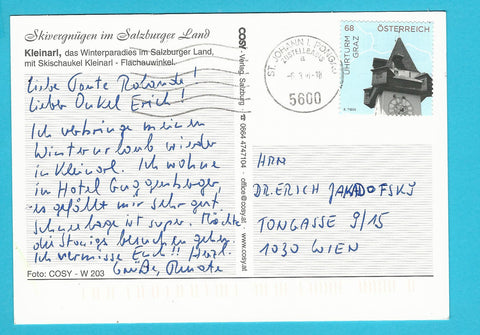 Skivergnügen im Salzburger Land
Kleinarl, das Winterparadies im Salzburger Land,
mit Skischaukel Kleinarl - Flachauwinkel.
Liebe Tante
Lieber Onkel Erich!
Ich verbringe meinen
Winterurlaub wieder
in Kleinarl. Ich wohne
im Hotel Guggenberger,
es gefällt mir sehr gut,
Schneelage ist super. Möchte
die besuchen gehen.
Ich vermisse Euch!! Herzl.
Grüße, Renate
Foto: COSY - W 203
COSY - Verlag, Salzburg
0664 4747104
office@cosy.at
www.cosy.at
ST. JOHANN I. PONGAU
a
5600
68
ÖSTERREICH
UHRTURM
GRAZ
HRN
DR. ERICH JAKADOFSKY
TONGASSE 9/15
1030 WIEN